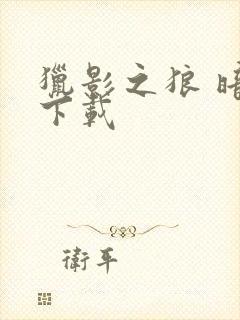 獵影之狼 暗
下載
衛平